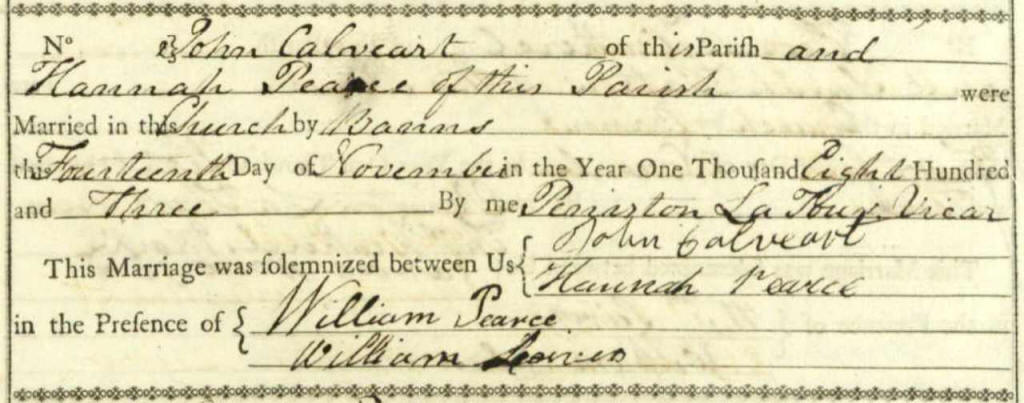 Nº John Calveart of this Pariſh and
Hannah Pearce of this Parish were
Married in this Church by Banns
this Fourteenth Day of November in the Year One Thouſand Eight Hundred
and Three By me Peniston La Tour Vicar
This Marriage was ſolemnized between Us { John Calveart
Hannah Pearce
in the Preſence of { William Pearce
William